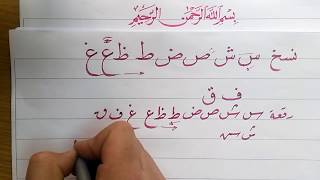 بسم الله الرحمن الرحيم
نسخ س ش ص ض ط ظ ع غ
ف ق
رقعة س ش ص ض ط ظ ع غ ف ق
ش س